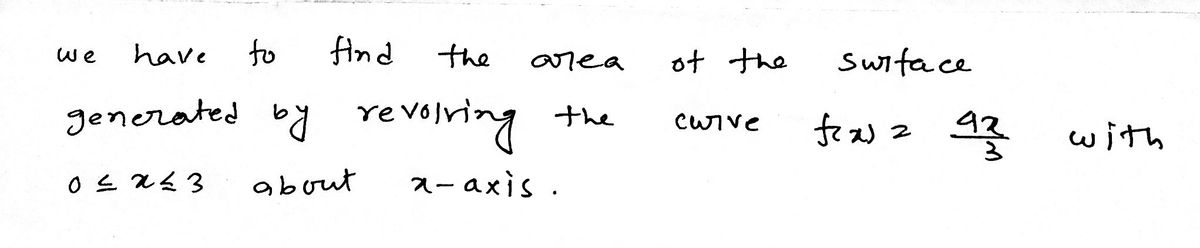 we have to find the area of the surface
generated by revolving the curve f(x) = 4x/3 with
0 ≤ x ≤ 3 about x-axis.